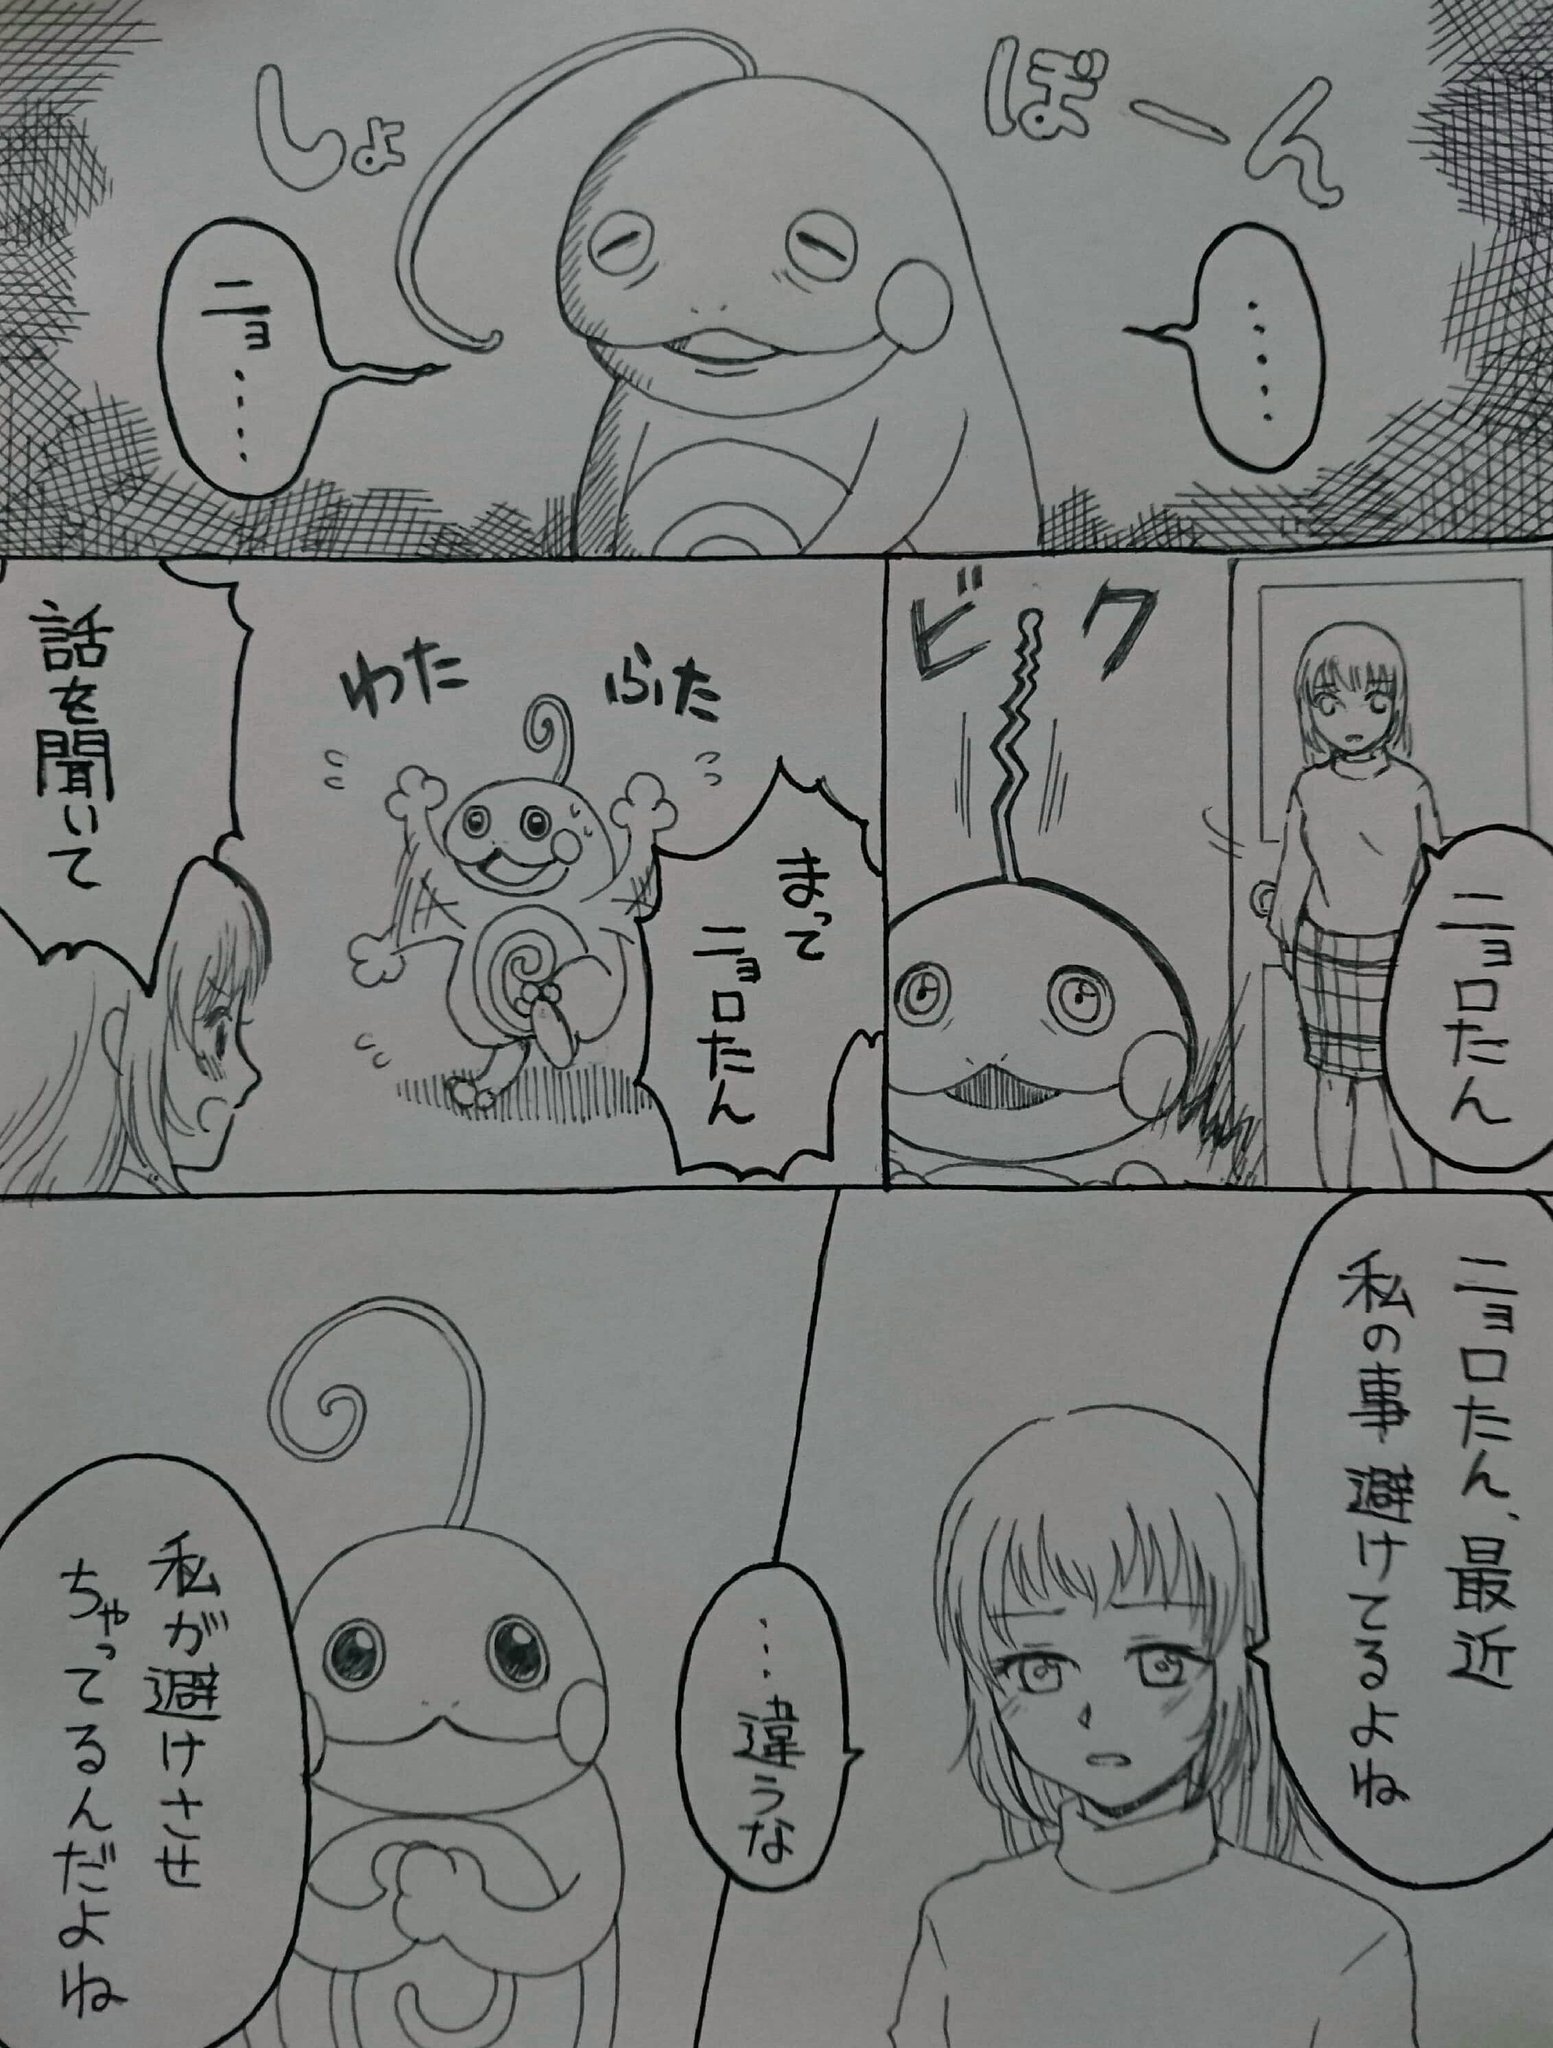 しょ
ぼーん
‥‥‥
ニョ‥‥
ニョロたん
ビク
まって
ニョロたん
わた
ふた
話を聞いて
ニョロたん、最近
私の事避けてるよね
…違うな
私が避けさせ
ちゃってるんだよね